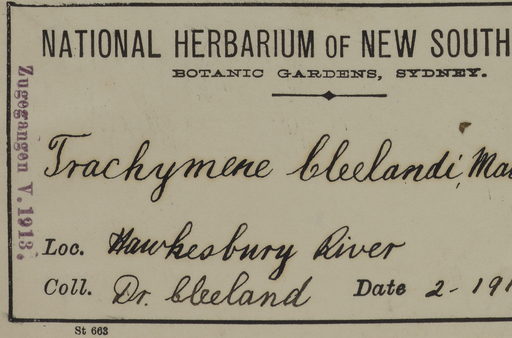 NATIONAL HERBARIUM OF NEW SOUTH
BOTANIC GARDENS, SYDNEY.
Trachymene Cleelandi, Mai
Loc. Hawkesbury River
Coll. Dr. Cleeland Date 2-191
St 663
Zugegangen V. 1913.